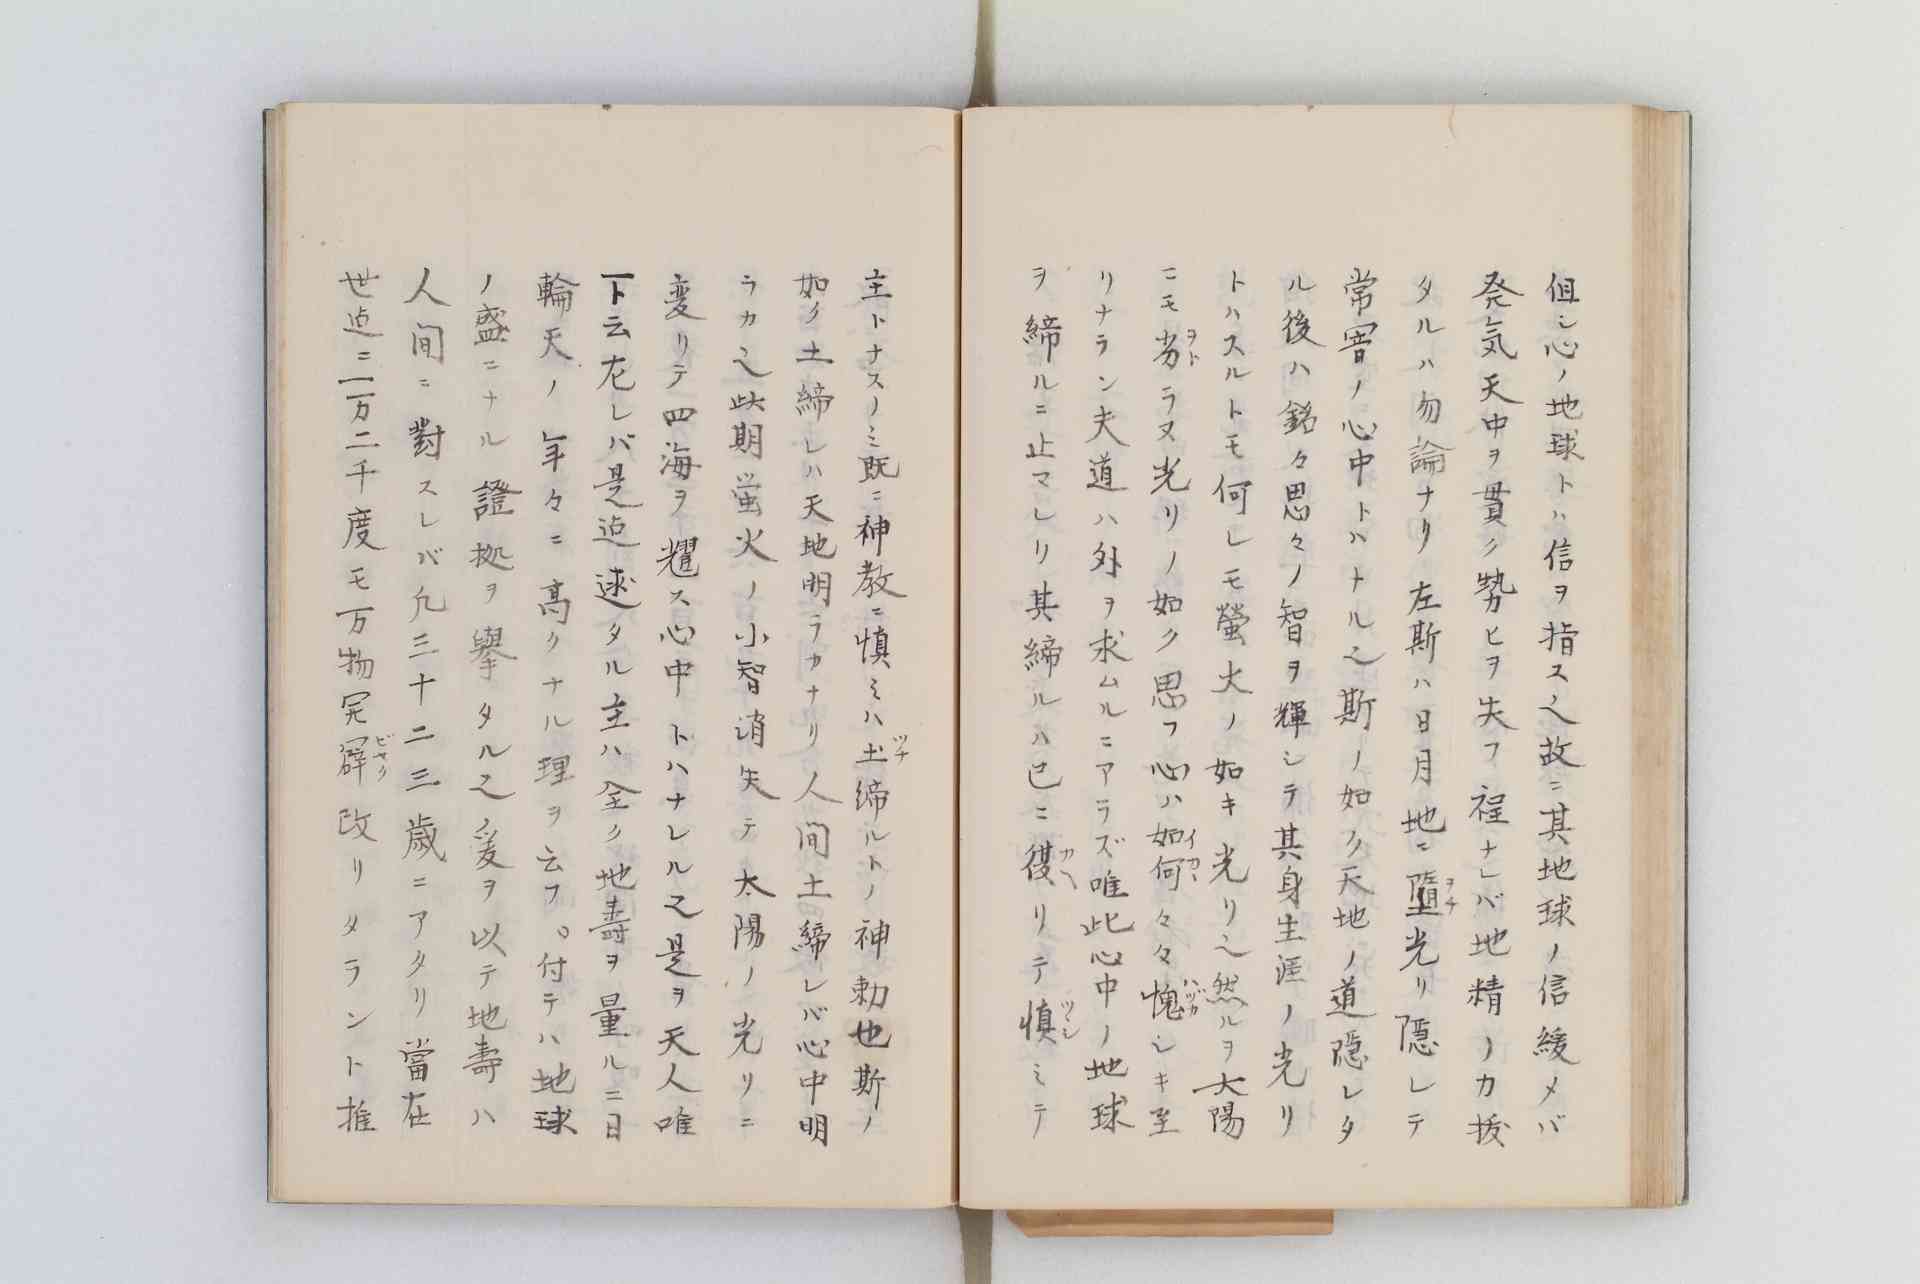 但シ心ノ地球トハ信ヲ指ス也故ニ其地球ノ信緩メバ
発気天中ヲ貫ク勢ヒヲ失フ程ナレバ地精ノカ抜
タルハ勿論ナリ左斯ハ日月地ニ墮光リ隠レテ
常宵ノ心中トハナル也斯ノ如ク天地ノ道隠レタ
ル後ハ銘々思々ノ智ヲ輝シテ其身生涯ノ光リ
トハスルトモ何レモ螢火ノ如キ光リ也然ルヲ太陽
ニモ劣ラヌ光リノ如ク思フ心ハ如何々々愧シキ至
リナラン夫道ハ外ヲ求ムルニアラズ唯此心中ノ地球
ヲ締ルニ止マレリ其締ルハ已ニ復リテ慎ミテ
主トナスノミ既ニ神教ニ慎ミハ土締ルトノ神勅也斯ノ
如ク土締レハ天地明ラカナリ人間土締レバ心中明
ラカ也此期蛍火ノ小智消失テ太陽ノ光リニ
変リテ四海ヲ耀ス心中トハナレル也是ヲ天人唯
一ト云左レバ是迠述タル主ハ全ク地壽ヲ量ルニ日
輪天ノ年々ニ高クナル理ヲ云フ。付テハ地球
ノ盛ニナル證拠ヲ擧タル也爰ヲ以テ地壽ハ
人間ニ對スレバ凢三十二三歳ニアタリ當在
世迠ニ二万二千度モ万物開闢改リタラント推